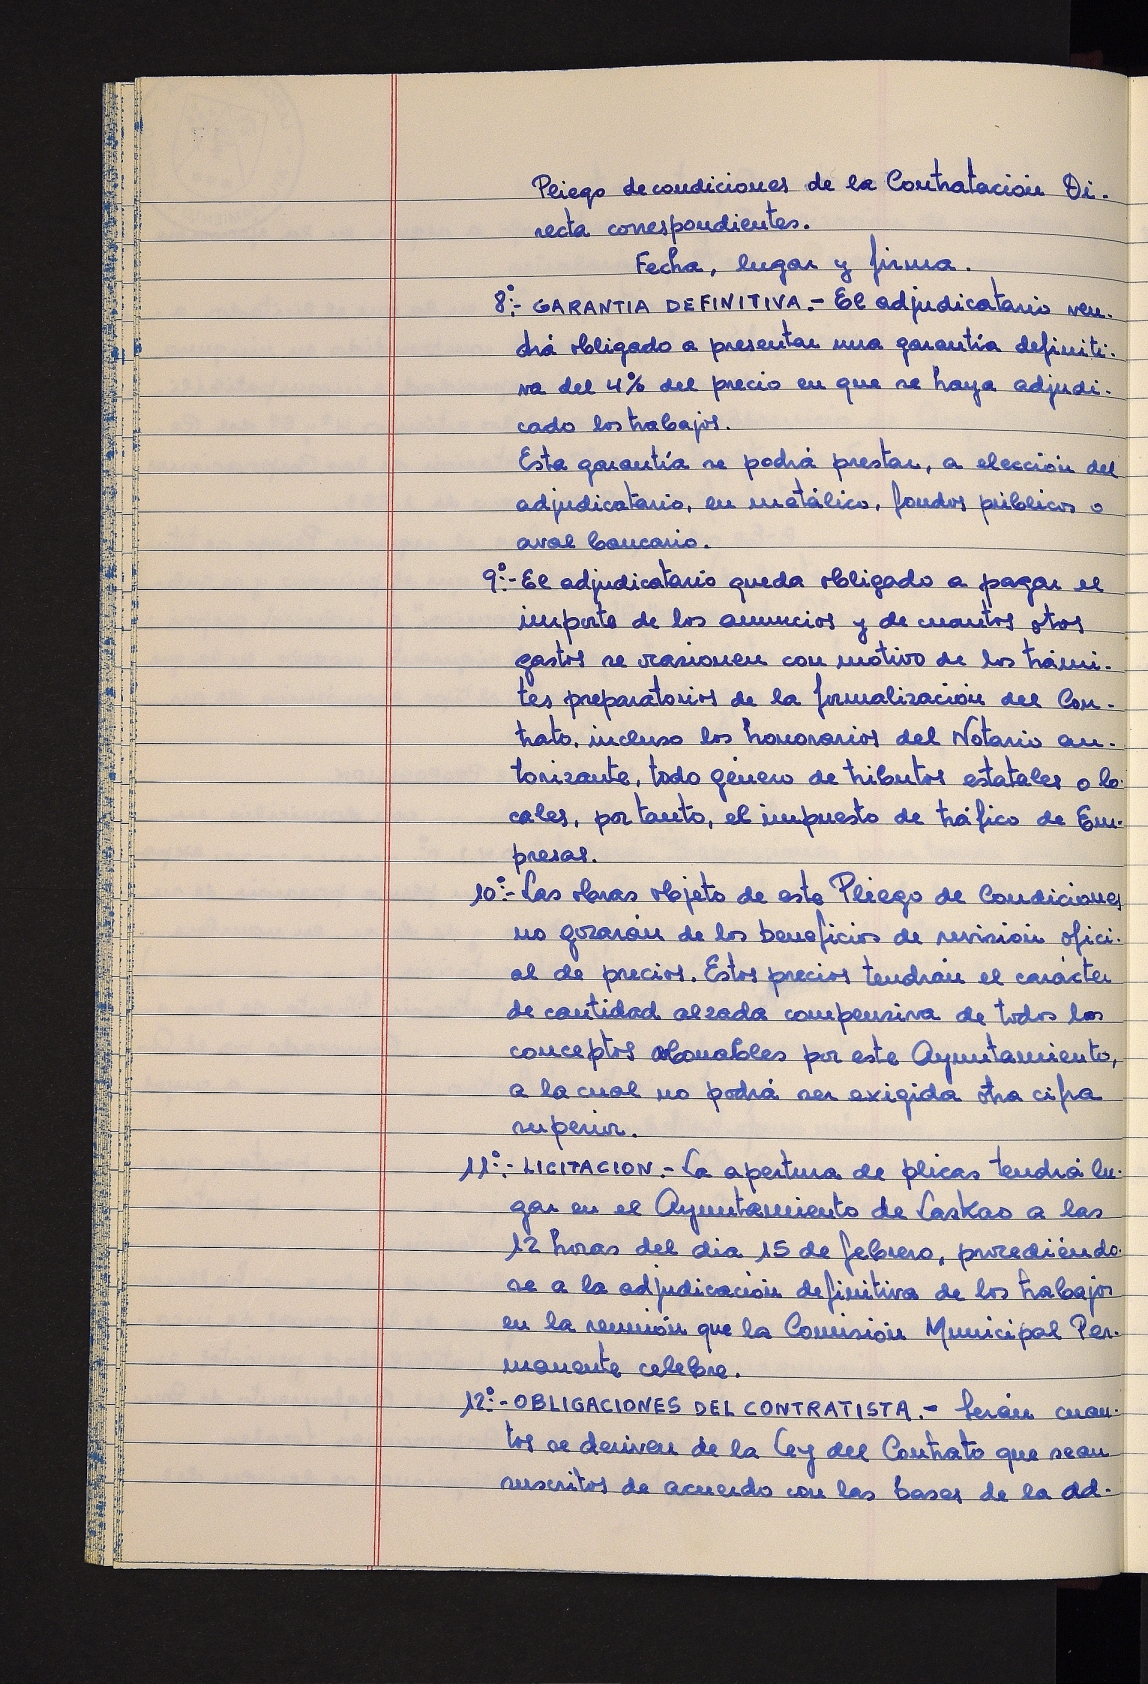 Pliego de condiciones de la Contratación Di-
recta correspondientes.
Fecha, lugar y firma.
8º.- GARANTIA DEFINITIVA.- El adjudicatario ven-
drá obligado a presentar una garantía definiti-
va del 4% del precio en que se haya adjudi-
cado los trabajos.
Esta garantía se podrá prestar, a elección del
adjudicatario, en metálico, fondos públicos o
aval bancario.
9º.- El adjudicatario queda obligado a pagar el
importe de los anuncios y de cuantos otros
gastos se ocasionen con motivo de los trámi-
tes preparatorios de la formalización del Con-
trato, incluso los honorarios del Notario au-
torizante, todo género de tributos estatales o lo-
cales, por tanto, el impuesto de tráfico de Em-
presas.
10º.- Las obras objeto de este Pliego de Condiciones
no gozarán de los beneficios de revisión ofici-
al de precios. Estos precios tendrán el carácter
de cantidad alzada compensiva de todos los
conceptos abonables por este Ayuntamiento,
a la cual no podrá ser exigida otra cifra
superior.
11º.- LICITACION.- La apertura de plicas tendrá lu-
gar en el Ayuntamiento de Lazkao a las
12 horas del dia 15 de febrero, procediéndo-
se a la adjudicación definitiva de los trabajos
en la reunión que la Comisión Municipal Per-
manente celebre.
12º.- OBLIGACIONES DEL CONTRATISTA.- Serán cuan-
tos se deriven de la Ley del Contrato que sean
suscritos de acuerdo con las bases de la ad-